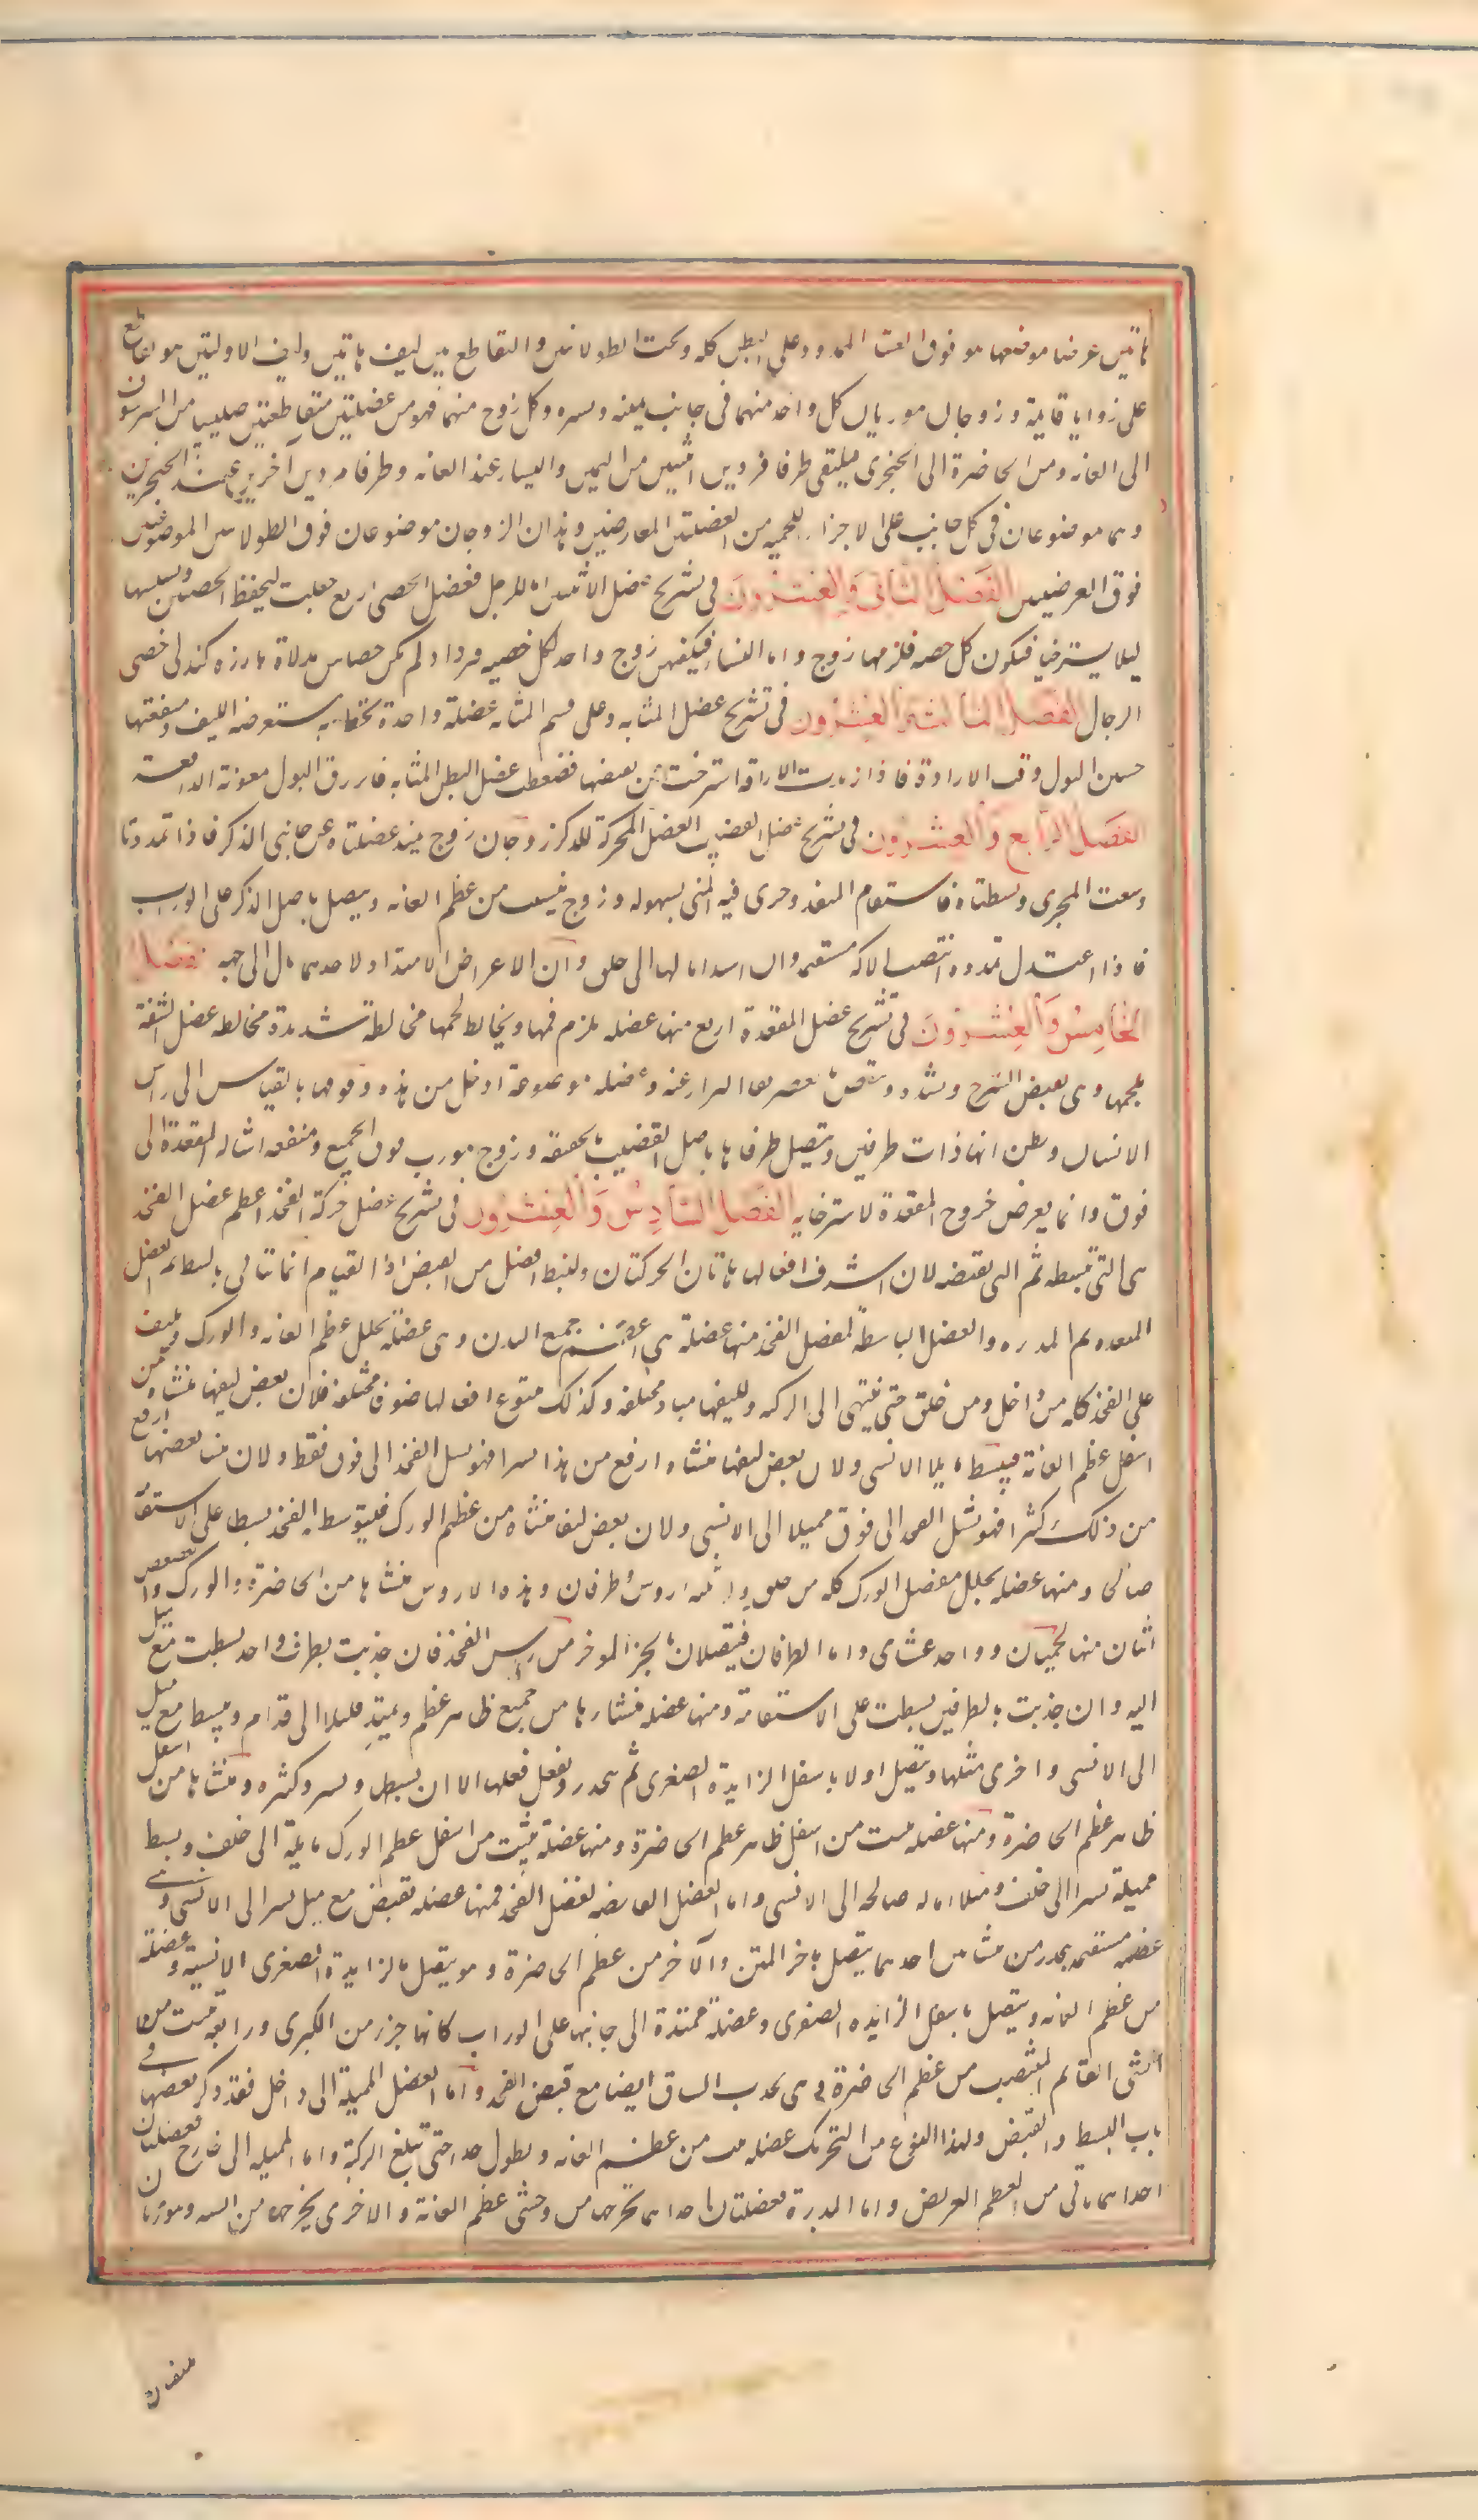 هاتين عرضا موضعها هو فوق الغشا الممدود على البطن كله وتحت الطولانيين والتقاطع بين ليف هاتين وليف الاوليتين هو تقاطع
على زوايا قايمة وزوجان موربان كل واحد منهما فى جانب يمنه ويسره وكل زوج منهما فهو من عضلتين متقاطعتين صليبيا من الشرسوف
الى العانه ومن الخاصرة الى الحنجرى فيلتقى طرفا فردين اثنين من اليمين واليسار عند العانه وطرفا فردين آخرين عند الحنجرى
وهما موضوعان فى كل جانب على الاجزاء اللحميه من العضلتين المعارضتين وهذان الزوجان موضوعان فوق الطولانيين الموضوعين
فوق العرضيين الفصل الثانى والعشرون فى تشريح عضل الانثيين اما للرجل فعضل الخصى اربع جعلت ليحفظ الخصيتين ويشيلها
ليلا يسترخيا فيكون كل خصيه فلزمها زوج واما النساء فيكفيهن زوج واحد لكل خصيه فردا ولم يكن خصاهن مدلاة بارزه كتدلى خصى
الرجال الفصل الثالث والعشرون فى تشريح عضل المثانه وعلى فم المثانه عضلة واحدة تحيط به مستعرضه الليف ومنفعتها
حبس البول وقت الارادة فاذا اريدت الاراقه استرخت عن بعضها فضغطت عضل البطن المثانه فانزرق البول بمعونة الدافعه
الفصل الرابع والعشرون فى تشريح عضل القضيب العضل المحركة للذكر زوجان زوج يمتد عضلتاه عن جانبى الذكر فاذا تمددتا
وسعت المجرى وبسطتاه فاستقام المنفذ وجرى فيه المنى بسهوله وزوج ينبت من عظم العانه ويتصل باصل الذكر على الوراب
فاذا اعتدل تمدده انتصب الاله مستقيما وان اشتد امالها الى خلف وان الاعراض الامتداد لاحدهما مال الى جهته الفصل
الخامس والعشرون فى تشريح عضل المقعدة اربع منها عضله تلزم فمها ويخالط لحمها مخالطة شديدة مخالطه عضل الشفة
لحمها وهى تقبض الشرج وتشده وتنفض بعصرها البراز عنه وعضله موضوعة ادخل من هذه وفوقها بالقياس الى راس
الانسان ويظن انها ذات طرفين ويتصل طرفاها باصل القضيب بالحقيقه وزوج مورب فوق الجميع ومنفعه اشاله المقعدة الى
فوق وانما يعرض خروج المقعدة لاسترخايه الفصل السادس والعشرون فى تشريح عضل حركة الفخذ اعظم عضل الفخذ
هى التى تبسطه ثم التى تقبضه لان اشرف افعالها هاتان الحركتان والبسط افضل من القبض اذا القيام انما يتاتى بالبسط ثم العضل
المبعده ثم المدره والعضل الباسطة لمفصل الفخذ منها عضلة هى اعظم جميع البدن وهى عضلة تجلل عظم العانه والورك وتلتف
على الفخذ كله من داخل ومن خلف حتى ينتهى الى الركبه ولليفها مباد مختلفه وكذلك تتنوع افعالها صنوفا مختلفه فلان بعض ليفها منشاه من
اسفل عظم العانة فيبسط مايلا الى الانسى ولان بعض ليفها منشاه ارفع من هذا يسيرا فهو يشيل الفخذ الى فوق فقط ولان منشا بعضها ارفع
من ذلك كثيرا فهو يشيل الفخذ الى فوق مميلا الى الانسى ولان بعض ليفها منشاه من عظم الورك فليبسط الفخذ بسطا على الاستقامة
صالحا ومنها عضله تجلل مفصل الورك كله من خلف ولها ثلثه اروس وطرفان وهذه الاروس منشاها من الخاصرة والورك والعصعص
اثنان منها لحميان وواحد غشاى واما الطرفان فيتصلان بالجز الموخر من راس الفخذ فان جذبت بطرف واحد بسطت مع ميل
اليه وان جذبت بالطرفين بسطت على الاستقامة ومنها عضله منشاءها من جميع ظاهر عظم ويمتد قليلا الى قدام ويبسط مع ميل
الى الانسى واخرى مثلها ويتصل اولا باسفل الزايدة الصغرى ثم ينحدر ويفعل فعلها الا ان بسطه يسير وكثره ومنشاها من اسفل
ظاهر عظم الخاصرة ومنها عضله تنبت من اسفل ظاهر عظم الخاصرة ومنها عضلة تنبت من اسفل عظم الورك مايلة الى خلف ويبسط
مميلة يسيرا الى خلف ومميلا اماله صالحه الى الانسى واما العضل القابضه لمفصل الفخذ فمنها عضله تقبض مع ميل يسير الى الانسى وهى
عضله مستقيمه ينحدر من منشاين احدهما يتصل باخر المتن والآخر من عظم الخاصرة وهو يتصل بالزايدة الصغرى الانسية وعضله
من عظم العانه ويتصل باسفل الزايده الصغرى وعضلة ممتدة الى جانبها على الوراب كانها جزء من الكبرى ورابعه تنبت من
الشى القايم المنتصب من عظم الخاصرة وهى يجذب الساق ايضا مع قبض الفخذ واما العضل المميلة الى داخل فقد ذكر بعضها فى
باب البسط والقبض ولهذا النوع من التحريك عضله تنبت من عظم العانه ويطول جدا حتى تبلغ الركبة واما المميله الى خارج فعضلتان
احداهما تاتى من العظم العريض واما المدرة فعضلتان احداهما مخرجها من وحشى عظم العانة والاخرى مخرجها من انسيه ويتوربان